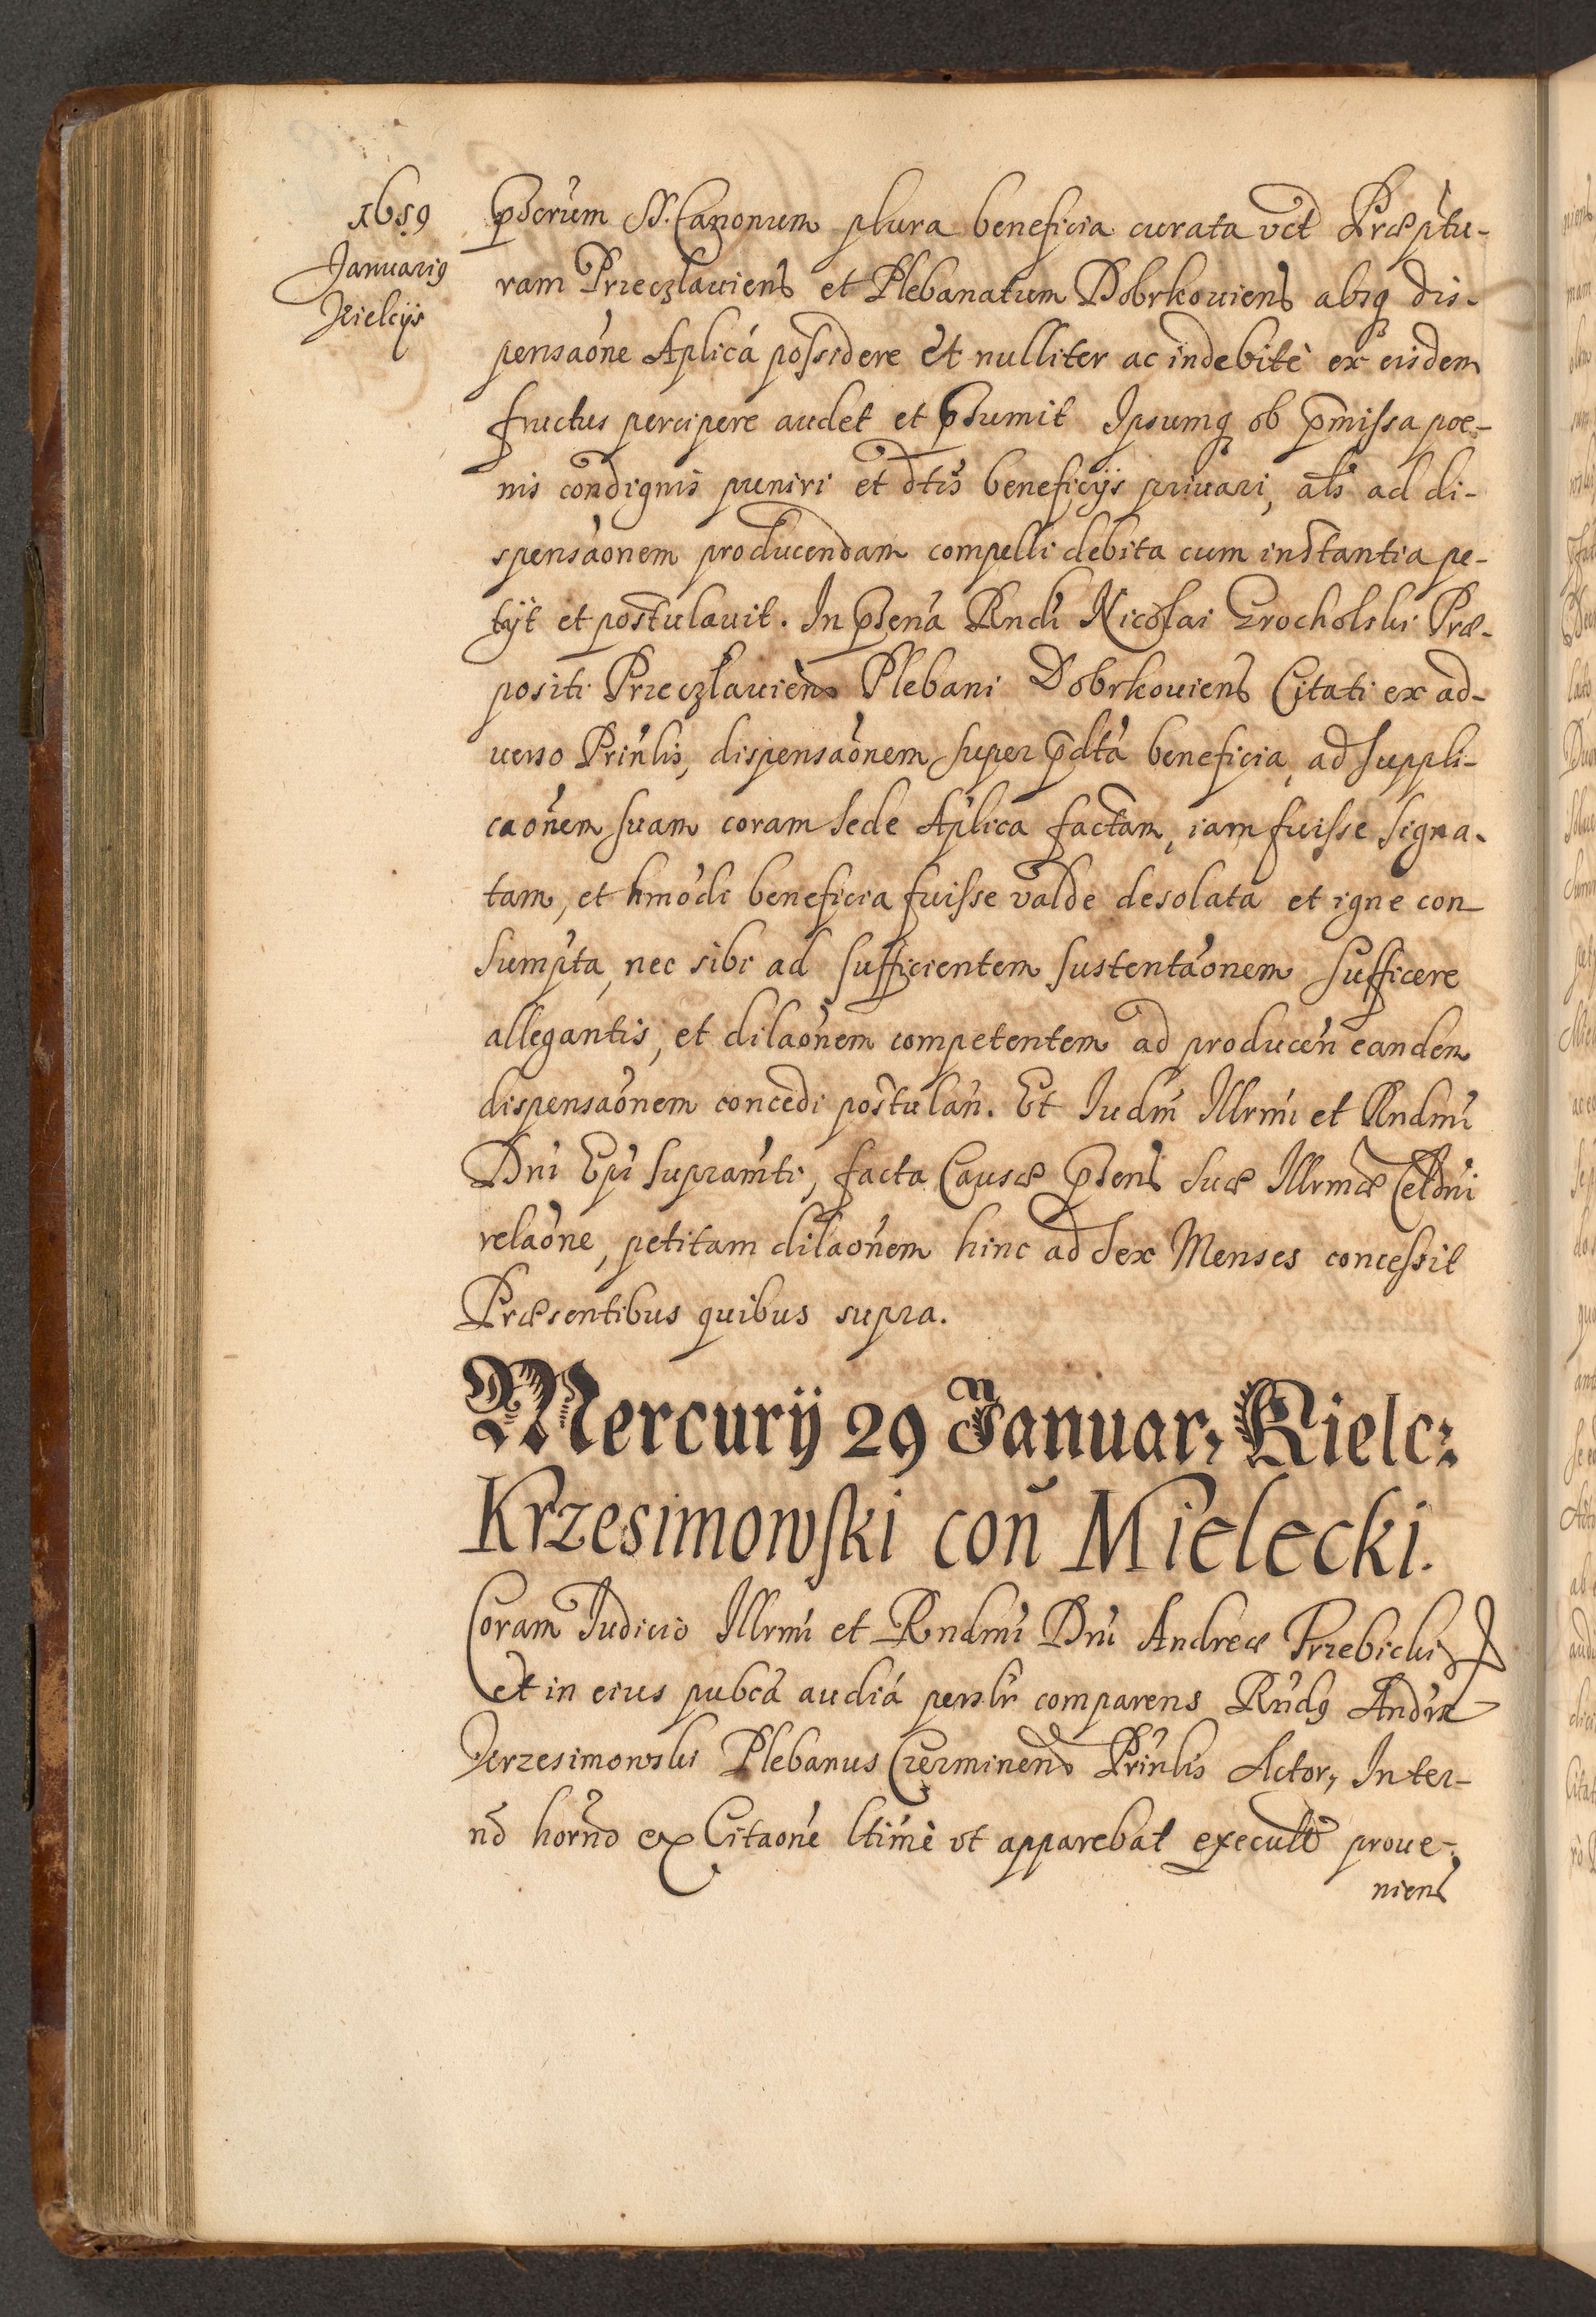 1659
Januarig
Kielcijs
pścrum SS. Canonum plura beneficia curata vct Præptu-
ram Przeczlauiens et Plebanatum Dobrkouiens absq dis-
pensaone Aplicá possidere et nulliter ac indebitè ex eisdem
fructus percipere audet et psumit Ipsumq ob pmissa poe-
nis condignis puniri et dtis beneficijs priuari, als ad di-
spensaonem producendam compelli debita cum instantia pe-
tijt et postulauit. In psena Rndi Nicolai Grocholski Præ-
positi Przeczlauiens Plebani Dobrkouiens Citati ex ad-
uerso Prinlis, dispensaonem super pdta beneficia, ad suppli-
caonem suam coram Sede Aplica factam, iam fuisse signa-
tam, et hmodi beneficia fuisse valde desolata et igne con-
sumpta, nec sibi ad sufficientem sustentaonem sufficere
allegantis, et dilaonem competentem ad producen eandem
dispensaonem concedi postulan. Et Iudm Illrmi et Rndmi
Dni Epi supramti, facta Causæ psens suæ Illrmæ Celdni
relaone, petitam dilaonem hinc ad sex Menses concessit
Præsentibus quibus supra.
Mercurij 29 Januar, Kielc:
Krzesimowski con Mielecki.
Coram Judicio Illrmi et Rndmi Dni Andreæ Trzebicki
et in eius pubca audia perslr comparens Rndg Andr
Krzesimowski Plebanus Czerminens Prinlis Actor, In ter-
no horno ex Citaone ltimè vt apparebat executo proue-
niens